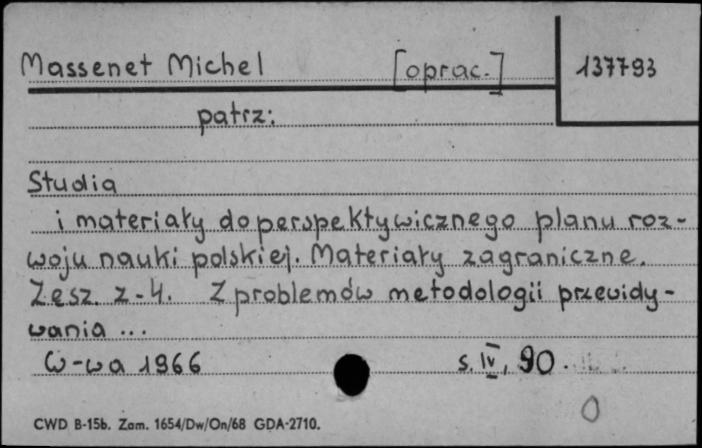 Massenet Michel [oprac.] 137793
patrz:
Studia
i materiały do perspektywicznego planu roz-
woju nauki polskiej. Materiały zagraniczne.
Zesz. z-4. Z problemów metodologii przewidy-
wania ...
W-wa 1966 s. IV, 90.
0
CWD B-15b. Zam. 1654/Dw/On/68 GDA-2710.